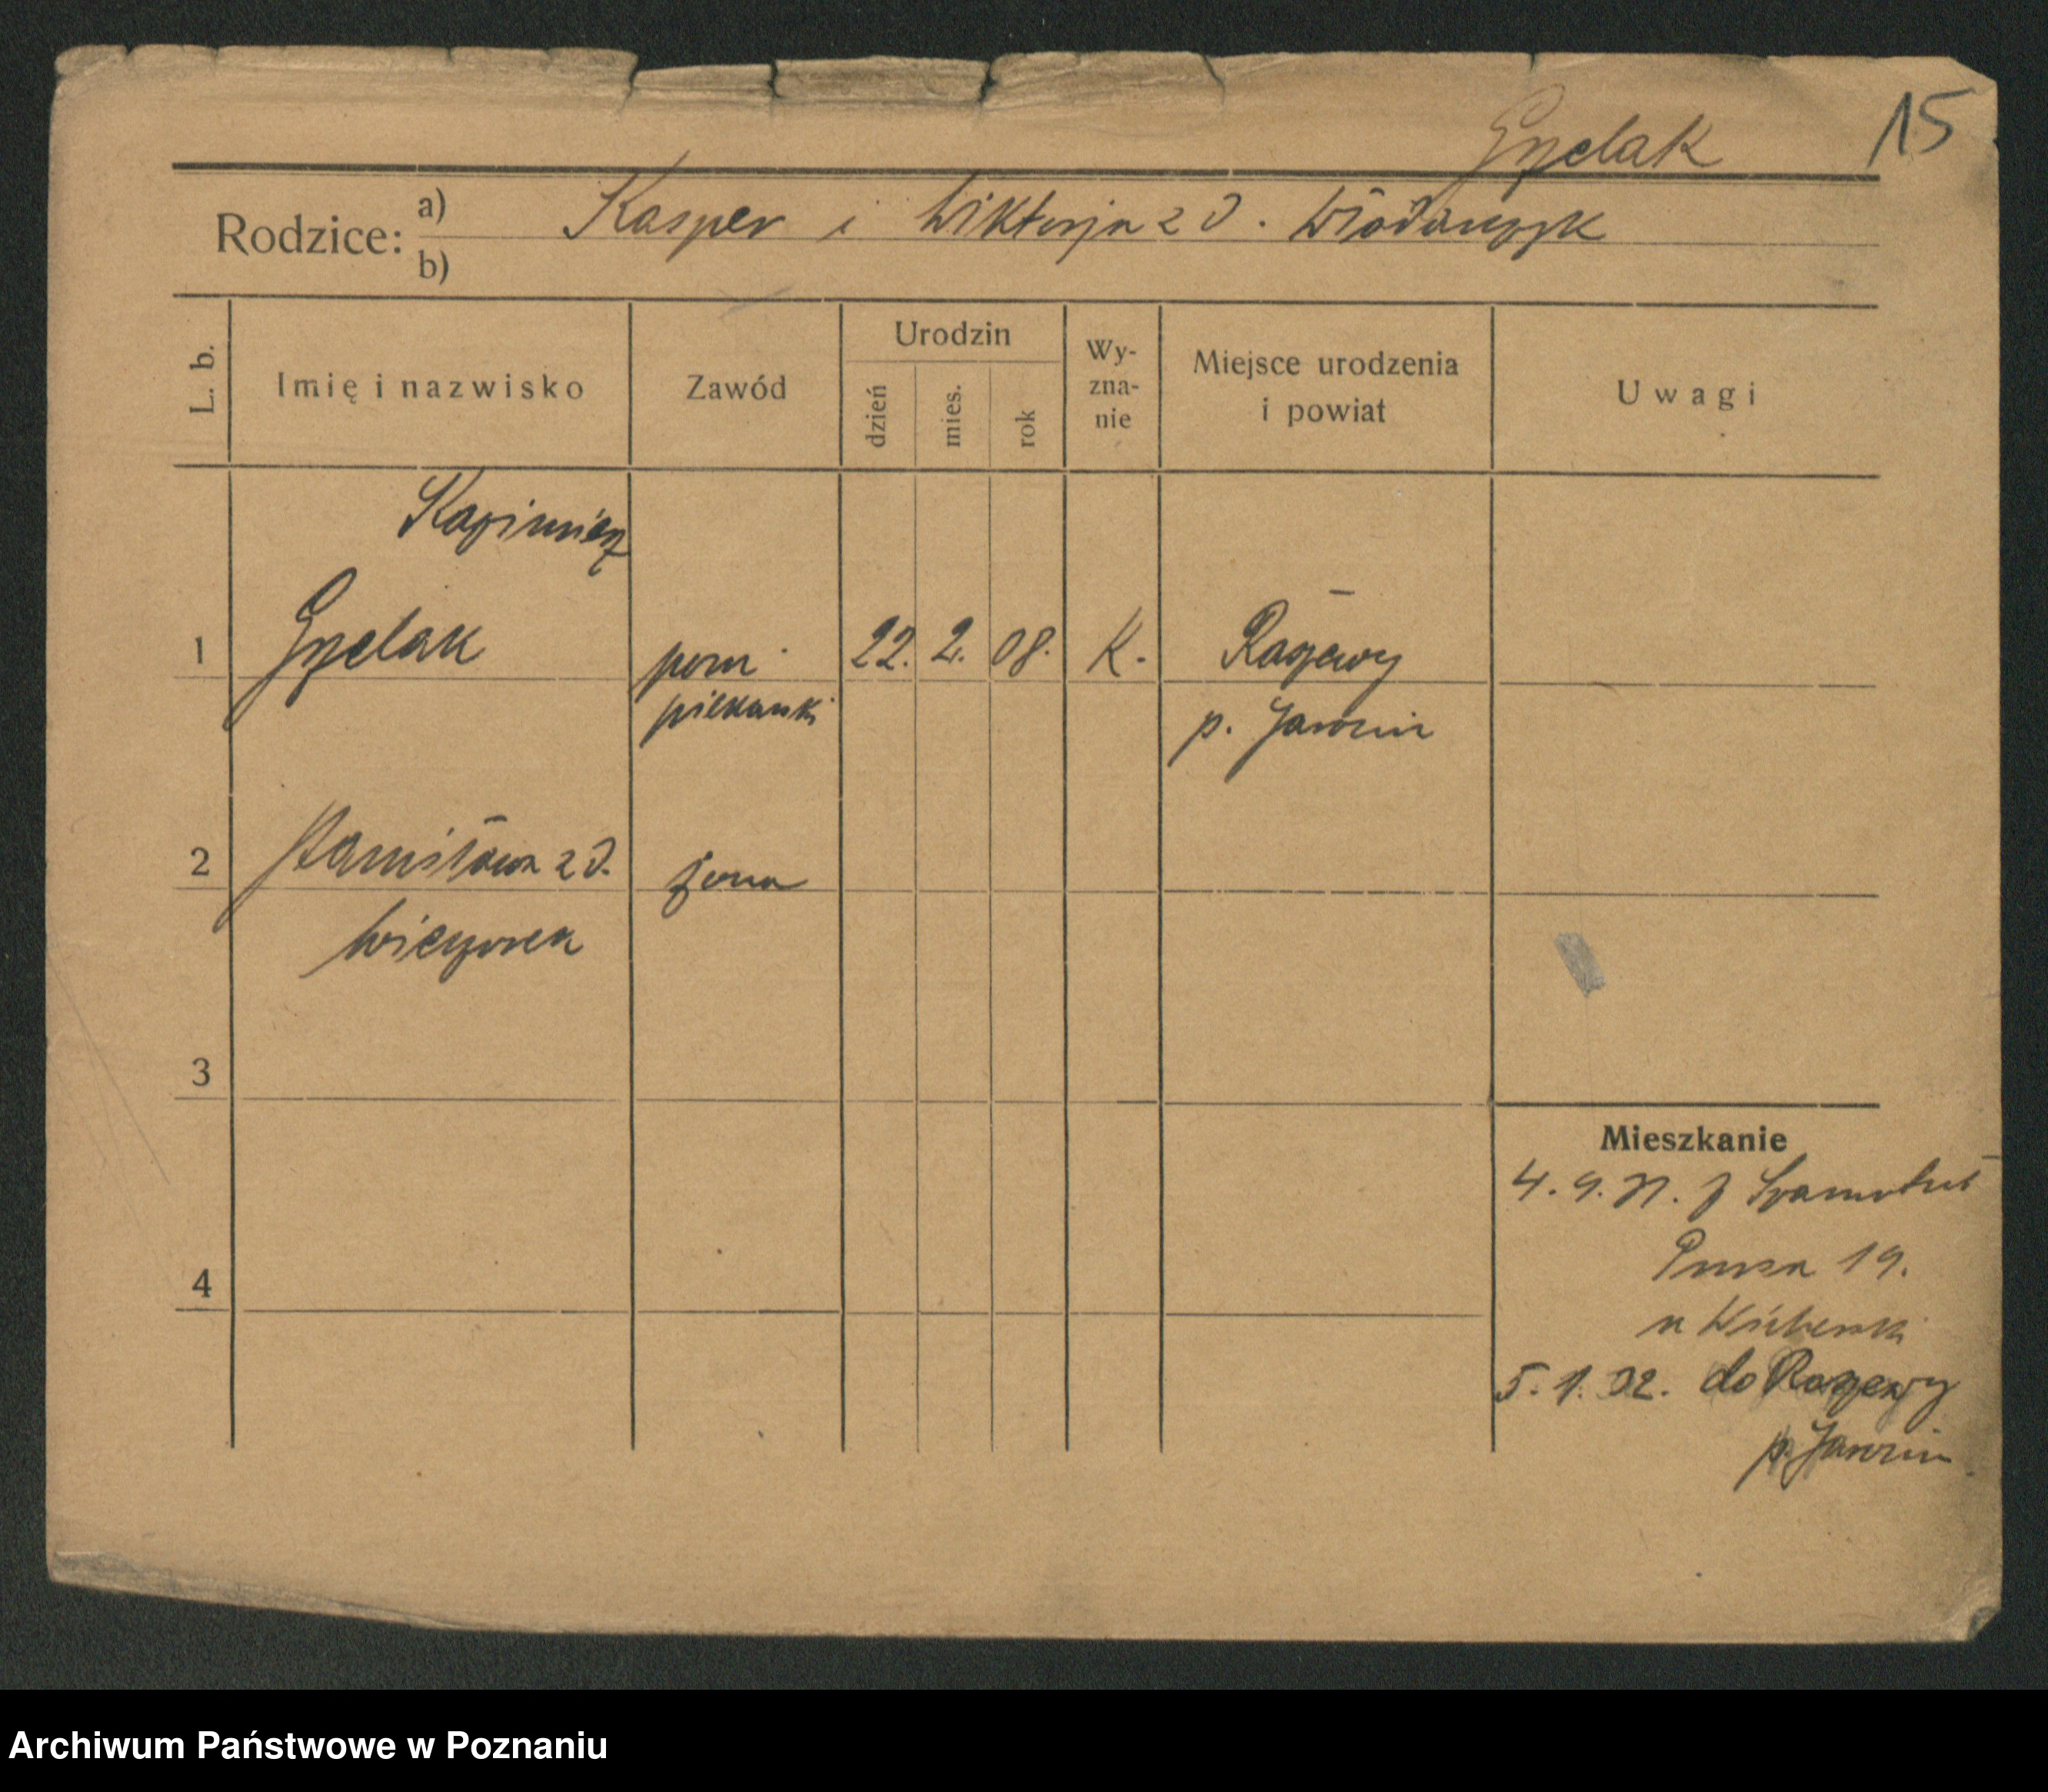 15
Gzelak
Rodzice: a) Kasper i Wiktorja z d. Włodarczyk
b)
L. b.
Imię i nazwisko
Zawód
Urodzin
dzień
mies.
rok
Wy-
zna-
nie
Miejsce urodzenia
i powiat
Uwagi
Kazimierz
1 Gzelak pom. 22. 2. 08. K.
piekarski p. Jarocin
2 Stanisława z d. żona
Wieczorek
3
4
Mieszkanie
4. 9. 31. z Szamotuł
Prusa 19.
u
5. 1. 32. do
p. Jarocin
Archiwum Państwowe w Poznaniu